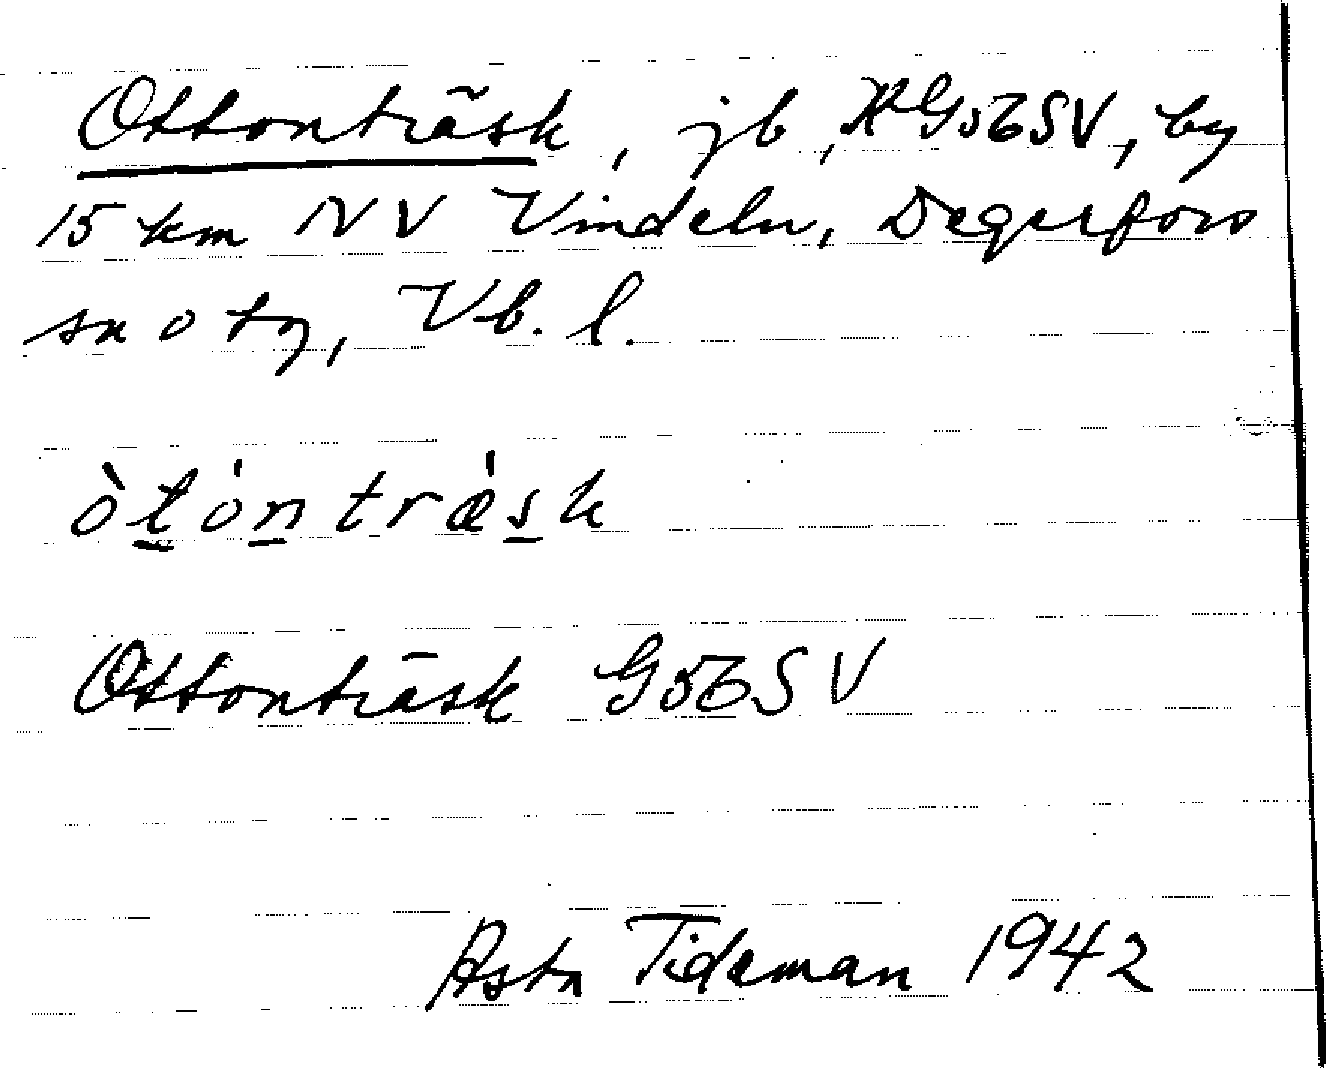 Ottonträsk, jb, H^RG5ESV, by
15 km NV Vindeln, Degerfors
sn o tg, Vb. l.
òtón træ̀sk
Ottonträsk G5ESV
Asta Tideman 1942